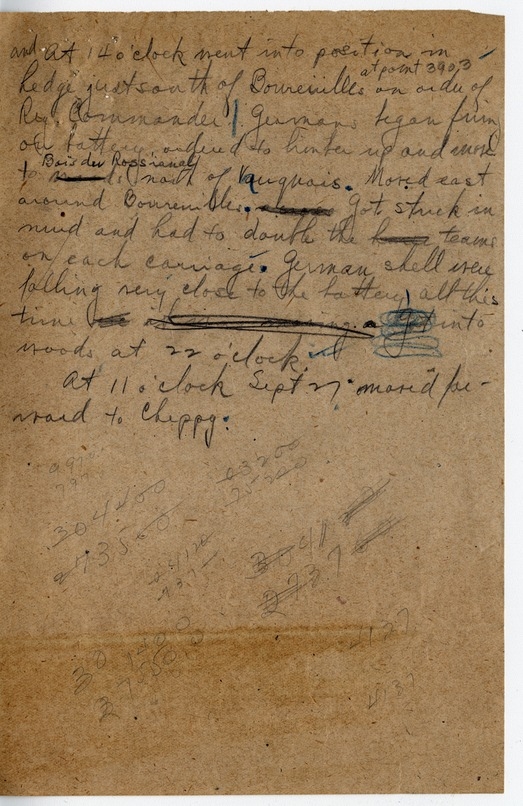 and At 14 o'clock went into position in
at point 390,3
hedge just south of Boureuilles on order of
Reg. Commander. Germans began firing
on battery, ordered to limber up and move
Bois deu Rossignol
to north of Vauquois. Moved east
around Boureuilles. Got stuck in
mud and had to double the teams
on each carriage. German shell were
falling very close to the battery all this
time into
woods at 22 o'clock.
At 11 o'clock Sept 27 moved for-
ward to Cheppy.
304400
273500
4137
4137